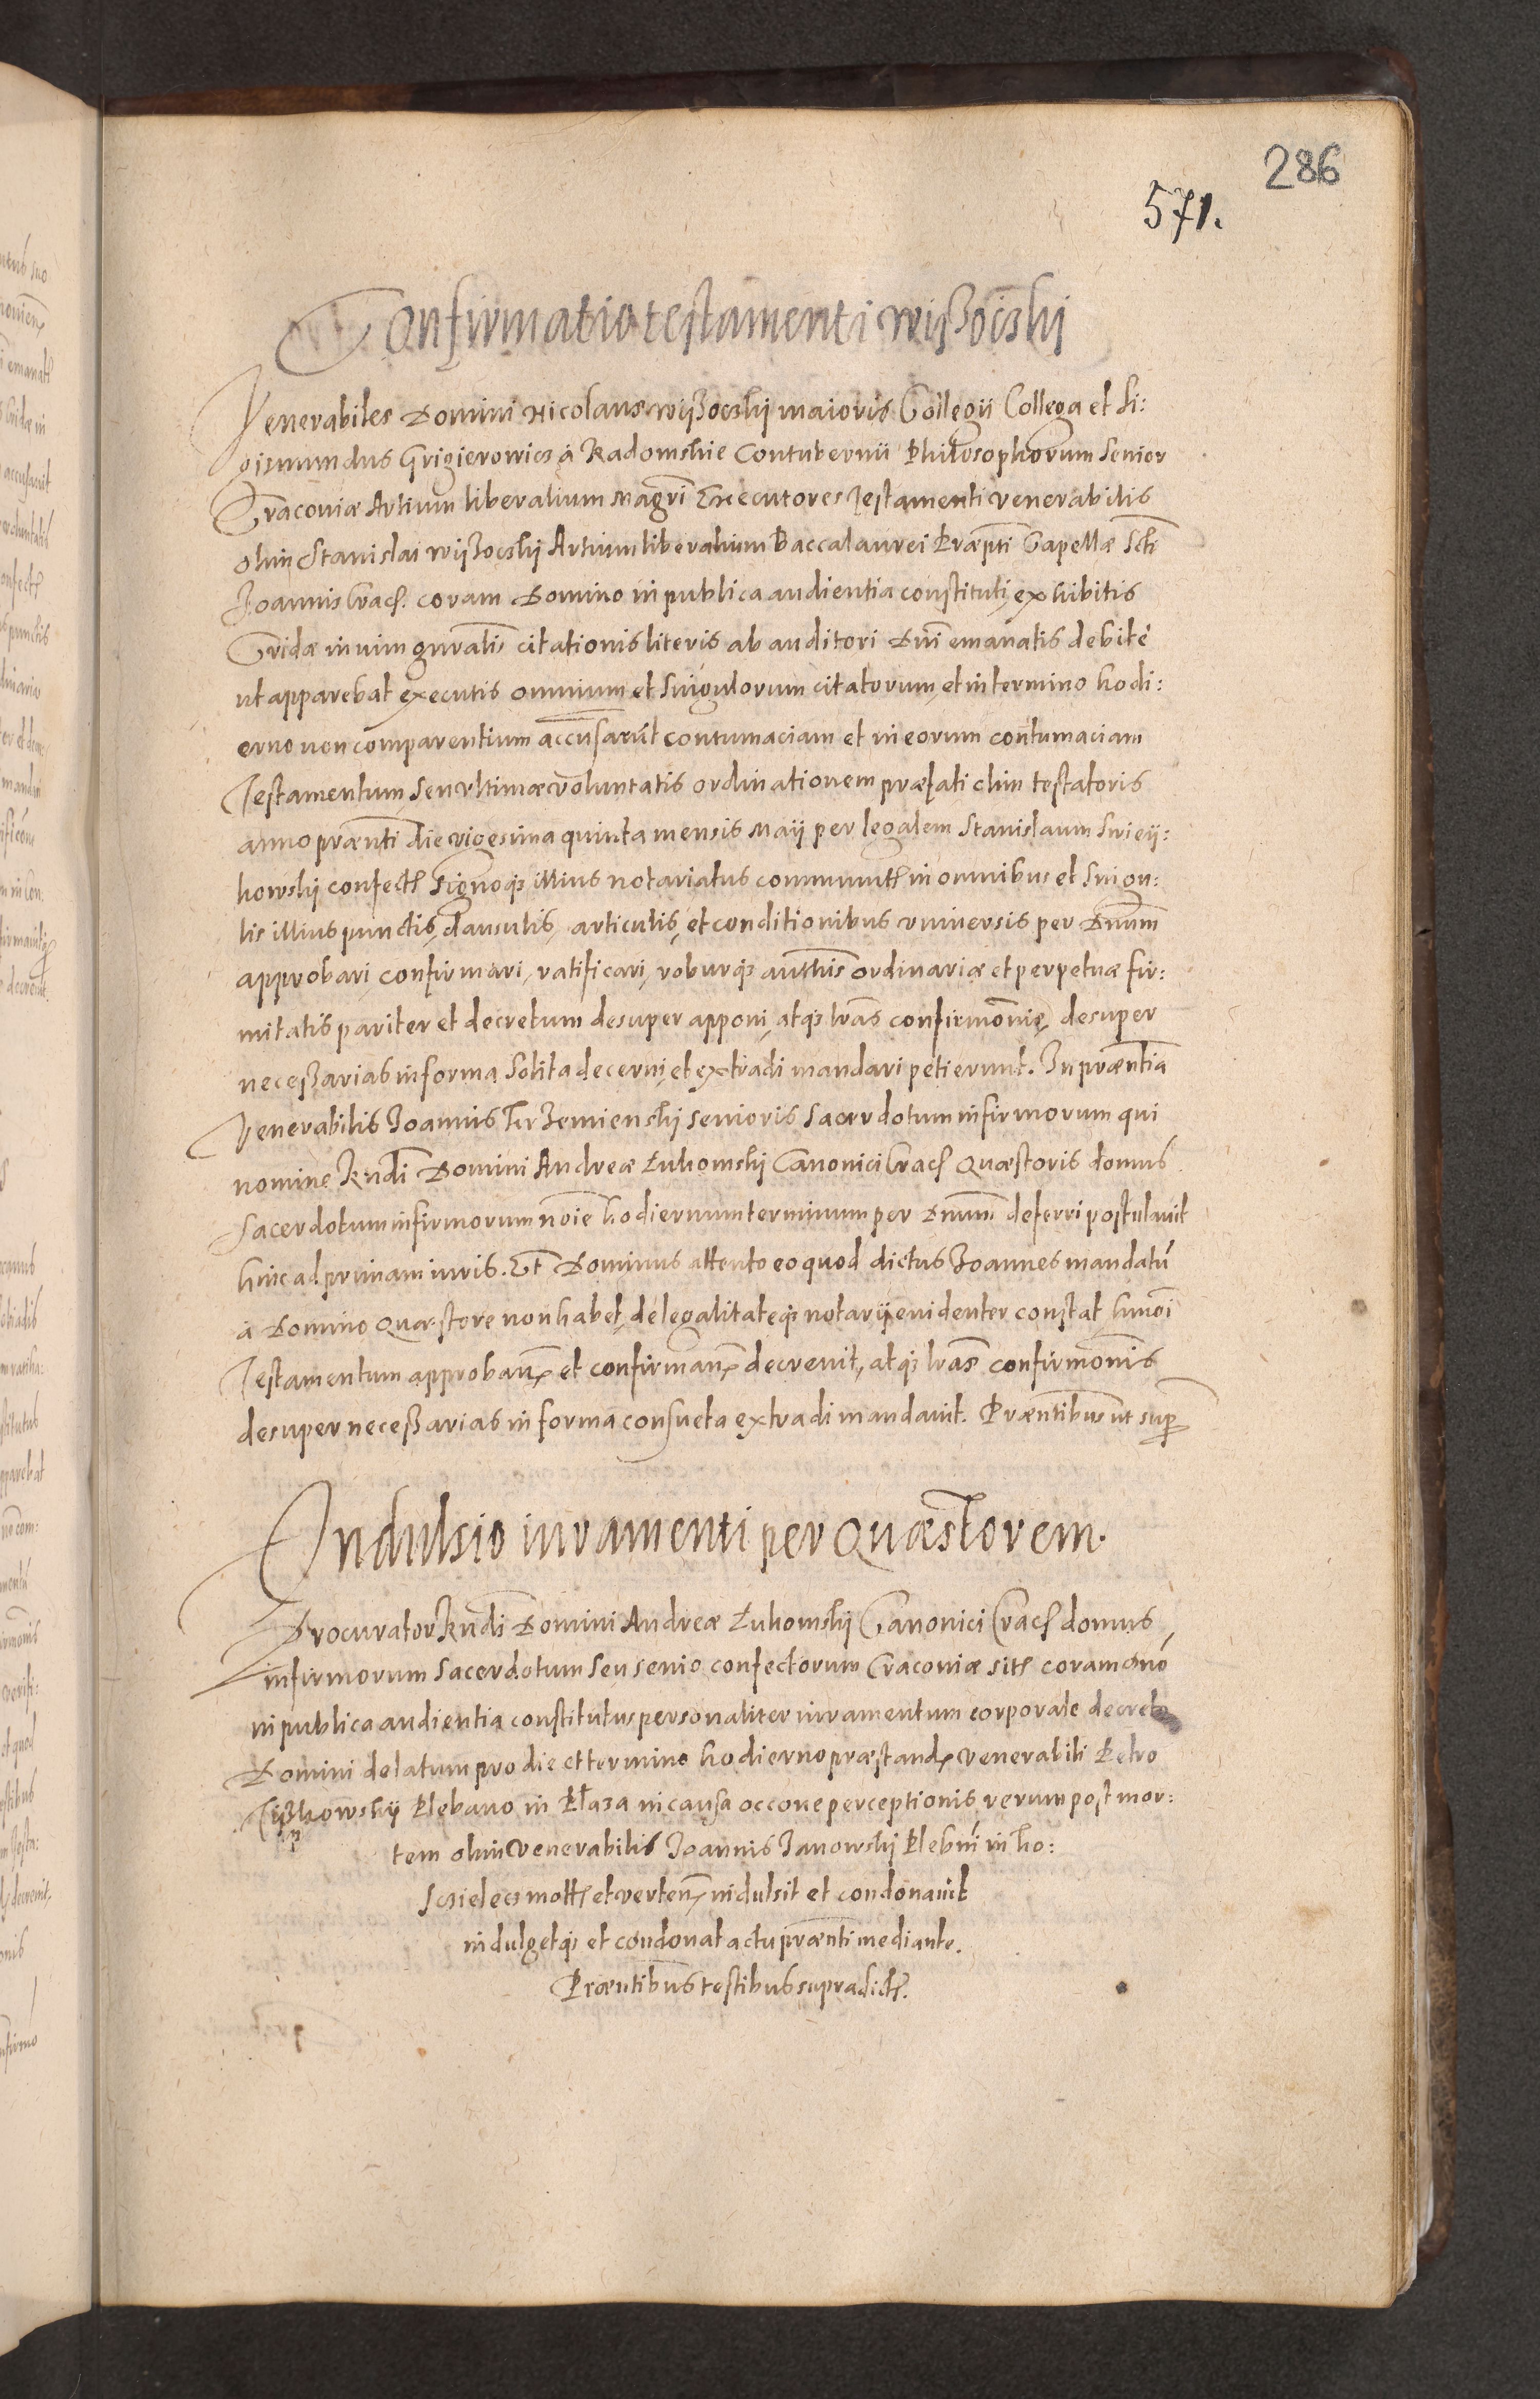 286
571.
Confirmatio testamenti wijßoczkj
Venerabiles Domini Nicolaus wijßoczkj maioris Collegii Collega et Si:
gismundus Grigierowicz à Radomskie Contubernii Philosophorum Senior
Cracoviæ Artium liberalium Magrĩ Executores Testamenti venerabilis
olim Stanislai wijßoczkj Artium liberalium Baccalaurei Præpti Capellæ Scti
Joannis Crac̃. coram Domino in publica audientia constituti, exhibitis
Cridæ in vim gnralis citationis literis ab auditori Dni emanatis debitè
ut apparebat executis omnium et singulorum citatorum, et in termino hodi:
erno non comparentium accusarũt contumaciam et in eorum contumaciam
Testamentum seu ultimæ voluntatis ordinationem præfati olim testatoris
anno præñti die vigesima quinta mensis Maij per legalem Stanislaum
kowskj confect̃ signoq̃ illius notariatus communit̃ in omnibus et singu:
lis illius punctis, clausulis, articulis, et conditionibus universis per Dnum
approbari, confirmari, ratificari, roburq̃ authtis ordinariæ et perpetuæ fir:
mitatis pariter et decretum desuper apponi, atq̃ lras confirmõnis desuper
neceßarias in forma solita decerni, et extradi mandari petierunt. In præñtia
Venerabilis Joannis senioris sacerdotum infirmorum qui
nomine Rndi Domini Andreæ Łukomskj Canonici Crac̃ Quæstoris domus
sacerdotum infirmorum noie hodiernum terminum per Dnum deferri postulavit
hinc ad primam iuris. Et Dominus attento eo quod dictus Joannes mandatũ
à Domino Quæstore non habet, de legalitateq̃ notarij evidenter constat, hmoi
Testamentum approbanď et confirmanď decrevit, atq̃ lras confirmõnis
desuper neceßarias in forma consueta extradi mandavit. Præntibus ut supr̃
Indulsio iuramenti per Quæstorem.
Procurator Rndi Domini Andreæ Łukomskj Canonici Crac̃ domus
infirmorum sacerdotum seu senio confectorum Cracoviæ sit̃ coram dno
in publica audientia constitutus personaliter iuramentum corporale decreto
Domini delatum pro die et termino hodierno præstanď venerabili Petro
Plebano in Płaza in causa occõne perceptionis rerum post mor:
tem olim venerabilis Joannis Janowskj Plebni in Ko:
scielecz mott̃ et verteñ indulsit et condonavit
indulgetq̃ et condonat actu præñti mediante.
Præntibus testibus supradict̃.